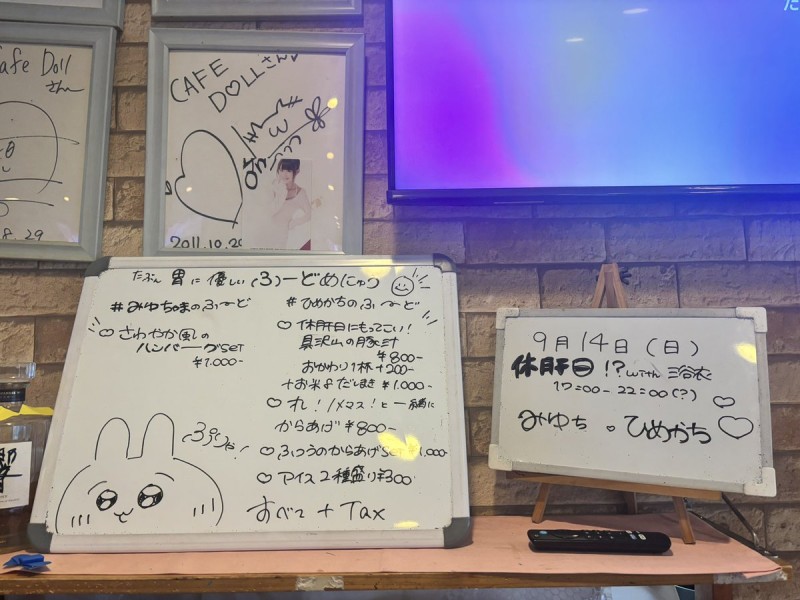 Cafe Doll
さん
8.29
CAFE
DOLLさん♡
2011.10.20
た
たぶん 胃に 優しい ふーどめにゅう
#みゆちゃまのふーど
♡ さわやか風の
ハンバーグSET
¥1.000-
#ひめかちのふーど
♡ 休肝日にもってこい!
具沢山の豚汁
¥800-
おかわり1杯+200-
+お米&だしまき ¥1.000-
♡ れ!/メマス!と一緒に
からあげ ¥800-
♡ ふつうのからあげSET ¥1.000-
♡ アイス2種盛り ¥300-
すべて + Tax
9月14日(日)
休肝日!?with 浴衣
17:00-22:00(?)
みゆち。ひめかち